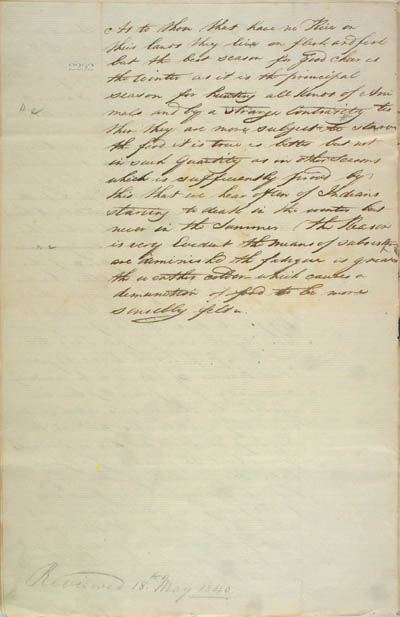 As to them that have no Rice on
their lands they live on flesh and fish
but the best season for good cheer is
the Winter as it is the principal
season for hunting all kinds of Ani
mals and by a strange Contrariety tis
then they are more subject to starve
the food it is true is better but not
in such Quantity as in other seasons
which is sufficiently proved by
this that we hear often of Indians
starving to death in the winter but
never in the Summer. The Reason
is very Evident the means of subsist
are diminished the fatigue is greater
the weather colder which causes a
diminution of food to be more
sensibly felt.
Reviewed 18th May 1840